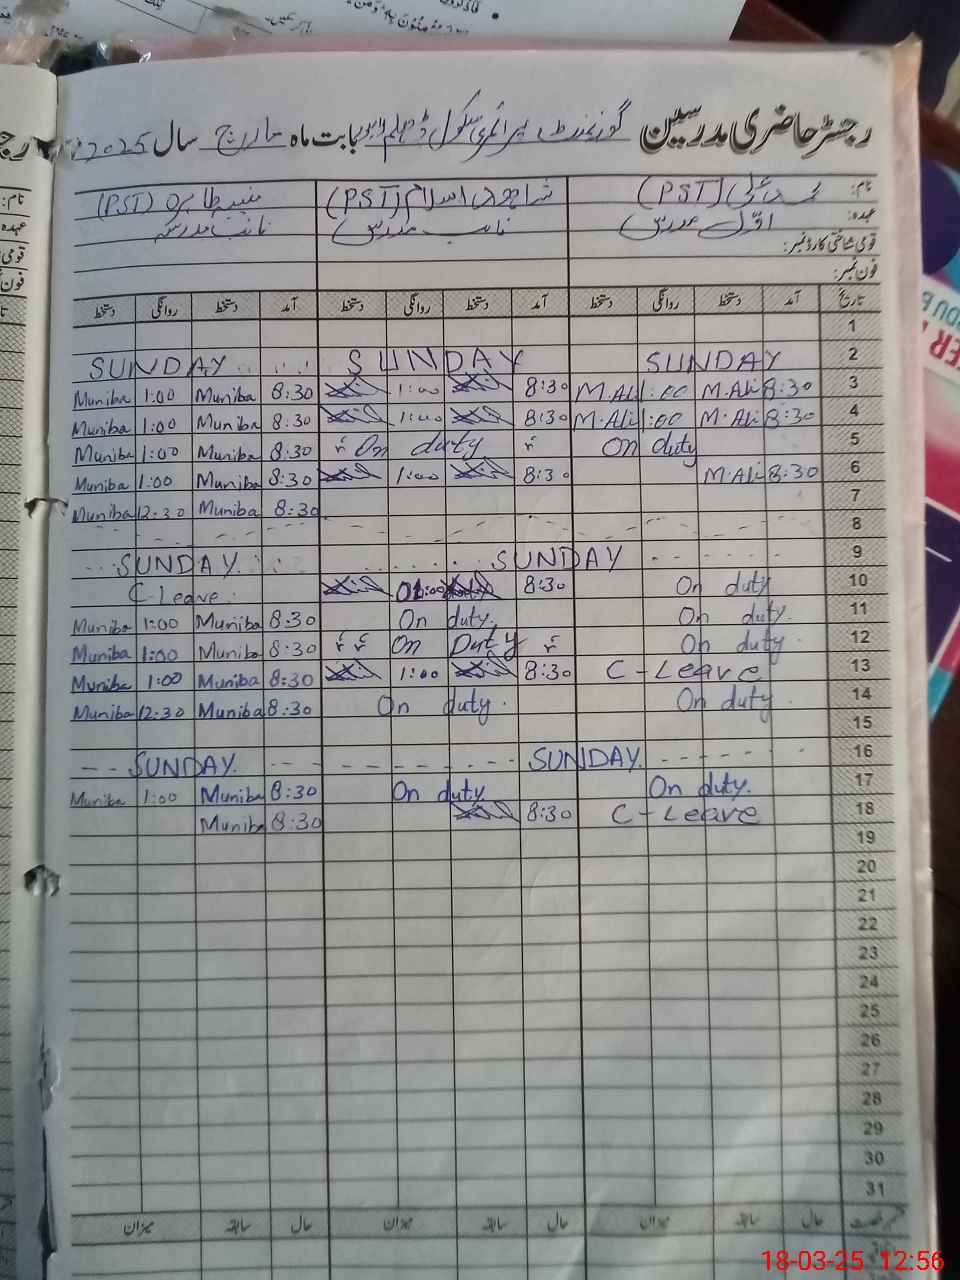 رجسٹر حاضری مدرسین گورنمنٹ پرائمری سکول بابت ماہ مارچ سال 2025
نام: محمد علی (PST) اسلام (PST) منیبہ طاہرہ (PST)
عہدہ: اوّل مدرس نائب مدرس نائب مدرسہ
قومی شناختی کارڈ نمبر:
فون نمبر:
تاریخ آمد دستخط روانگی دستخط آمد دستخط روانگی دستخط آمد دستخط روانگی دستخط
1
SUNDAY SUNDAY SUNDAY 2
Muniba 1:00 Muniba 8:30 1:00 8:30 M.Ali 1:00 M.Ali 8:30 3
Muniba 1:00 Muniba 8:30 1:00 8:30 M.Ali 1:00 M.Ali 8:30 4
Muniba 1:00 Muniba 8:30 On duty On duty 5
Muniba 1:00 Muniba 8:30 1:00 8:30 M.Ali 8:30 6
Muniba 12:30 Muniba 8:30 7
8
SUNDAY SUNDAY 9
C-Leave 01:00 8:30 On duty 10
Muniba 1:00 Muniba 8:30 On duty. On duty. 11
Muniba 1:00 Muniba 8:30 On Duty On duty. 12
Muniba 1:00 Muniba 8:30 1:00 8:30 C-Leave 13
Muniba 12:30 Muniba 8:30 On duty. On duty. 14
15
SUNDAY. SUNDAY. 16
Muniba 1:00 Muniba 8:30 On duty. On duty. 17
Muniba 8:30 8:30 C-Leave 18
19
20
21
22
23
24
25
26
27
28
29
30
31
حال سابقہ میزان حال سابقہ میزان حال سابقہ میزان
18-03-25 12:56